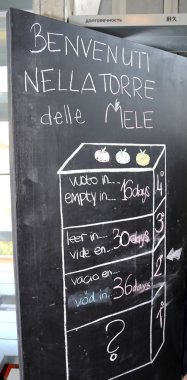 долговечность 耐久
BENVENUTI
NELLA TORRE
delle MELE
vuoto in.... 16 days
empty in...
4°
leer in... 30 days
vide en..
3°
vacio en...
vöd in... 36 days
2°
?
1°